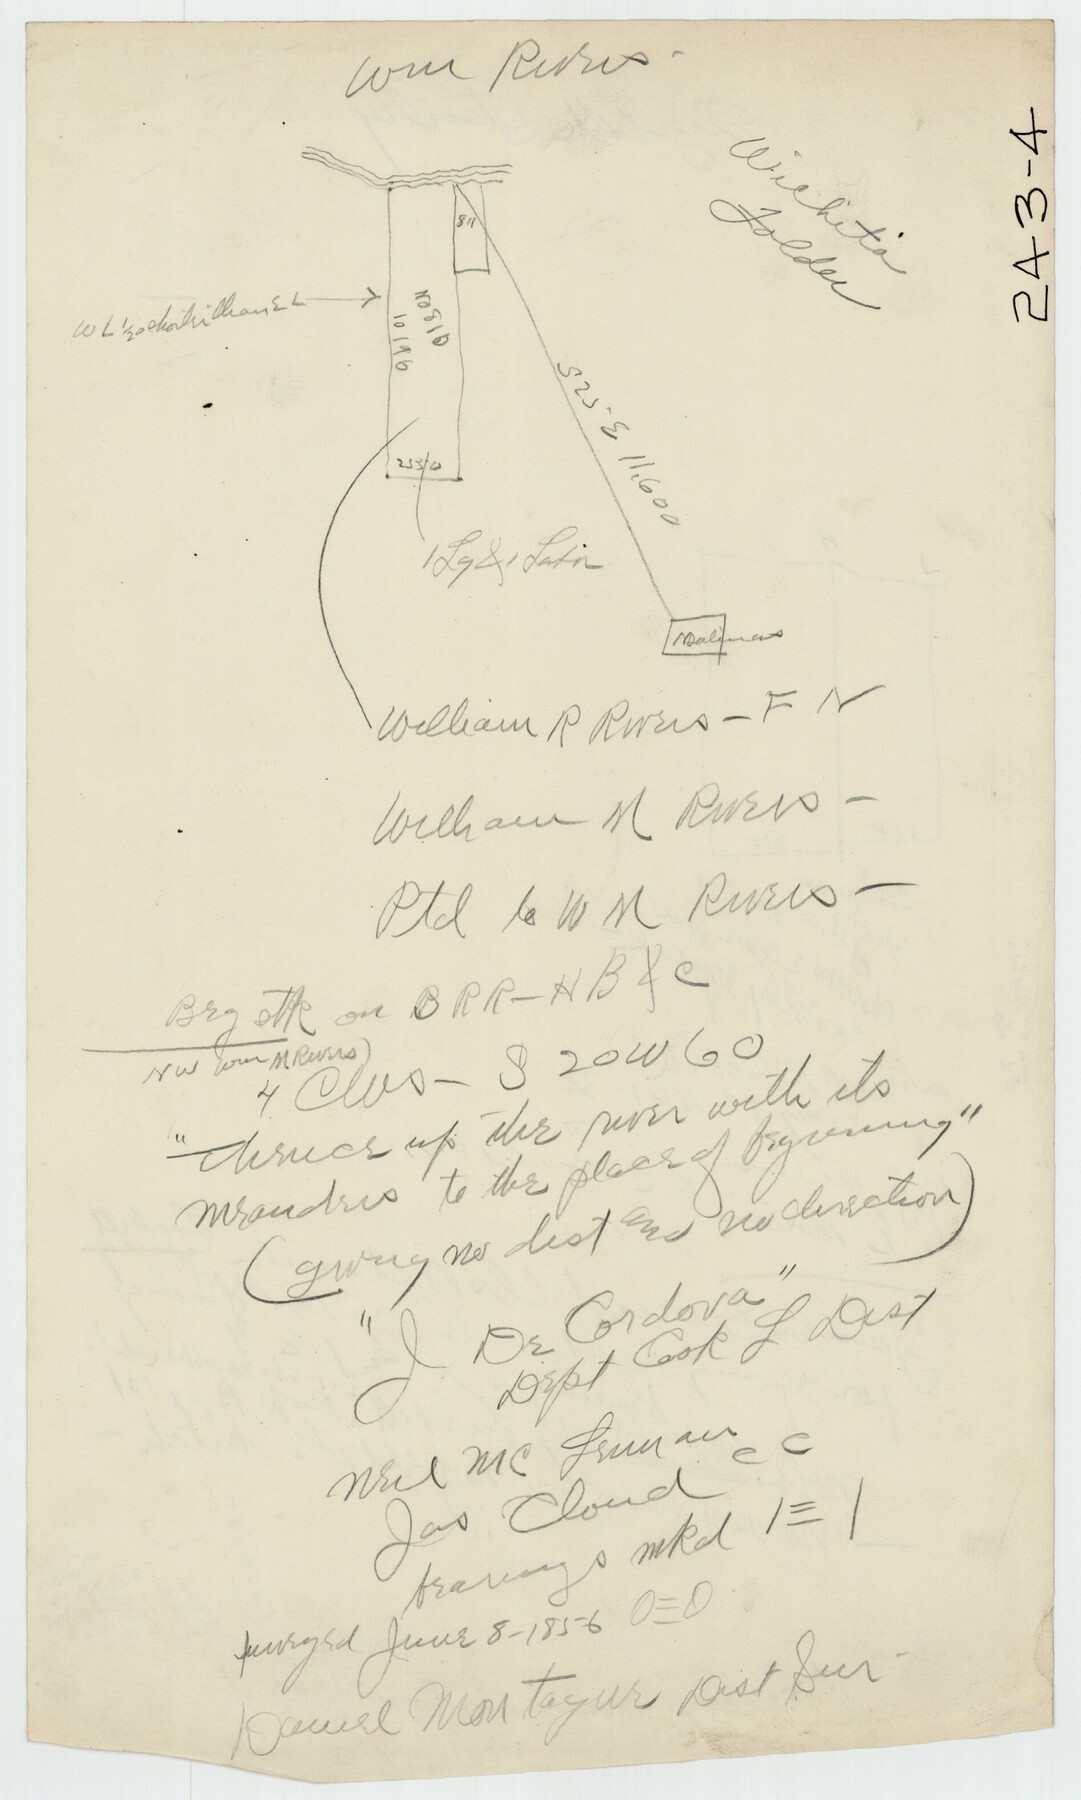 Wm Rivers
Wichita
Folder
2A3-4
811
W L
NO81D
10196
S25-E 11,600
2550
1 Lg & 1 Labor
Malinas
William R Rivers - F N
William M Rivers -
Ptd to W M Rivers -
Beg stk on B R R - H B & C
NW Wm M Rivers)
4 Clvs - S 20 W 60
"thence up the river with its
meanders to the place of beginning"
(giving no dist and no direction)
"J De Cordova"
Dept Cook L Dist
Neil McLennan
Jas Cloud C C
bearings mkd 1≡1
surveyed June 8-1856 0≡0
Daniel Montague Dist Sur